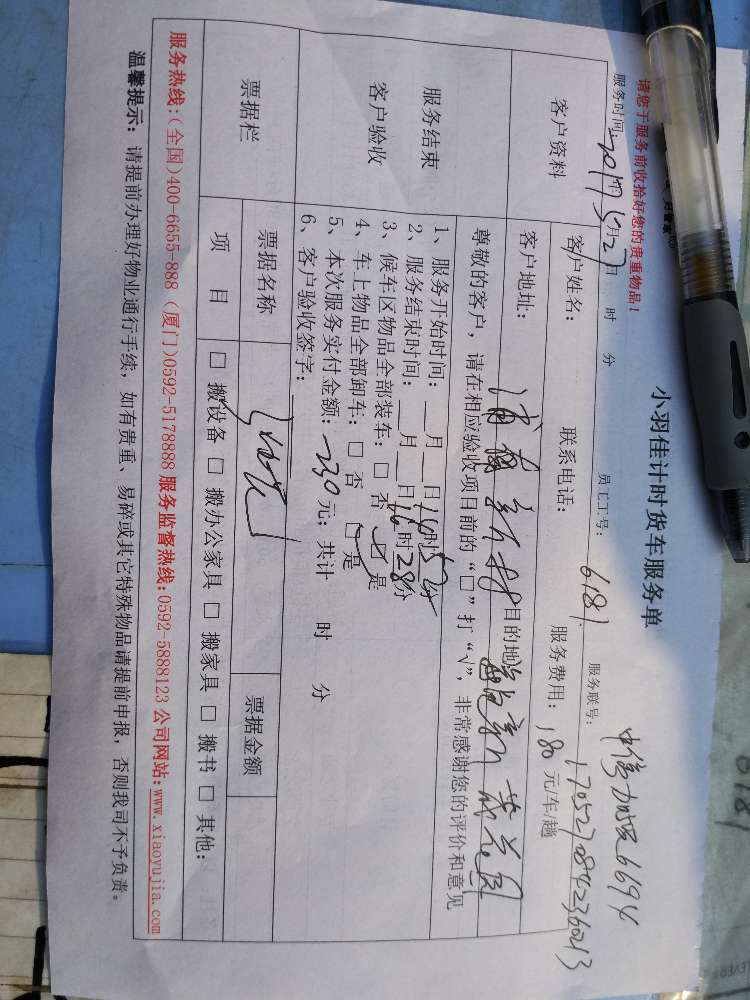 小羽佳计时货车服务单
请您于服务前收拾好您的贵重物品!
中信加坂6694
服务时间: 2017年5月27日 时 分 员工工号: 6181 服务联号: 170527084236013
客户资料
客户姓名: 联系电话: 服务费用: 180元/车/趟
客户地址: 新村 目的地
尊敬的客户,请在相应验收项目前的“□”打“√”,非常感谢您的评价和意见
服务结束
客户验收
1、服务开始时间: 月 日 时 分
2、服务结束时间: 月 日16时28分
3、候车区物品全部装车: □ 否 ☑ 是
4、车上物品全部卸车: □ 否 □ 是
5、本次服务实付金额: 230元; 共计 时 分
6、客户验收签字:
票据栏
票据名称 票据金额
项 目 □ 搬设备 □ 搬办公家具 □ 搬家具 □ 搬书 □ 其他:
服务热线:(全国)400-6655-888 (厦门)0592-5178888 服务监督热线:0592-5888123 公司网站:www.xiaoyujia.com
温馨提示: 请提前办理好物业通行手续,如有贵重、易碎或其它特殊物品请提前申报,否则我司不予负责。
6181